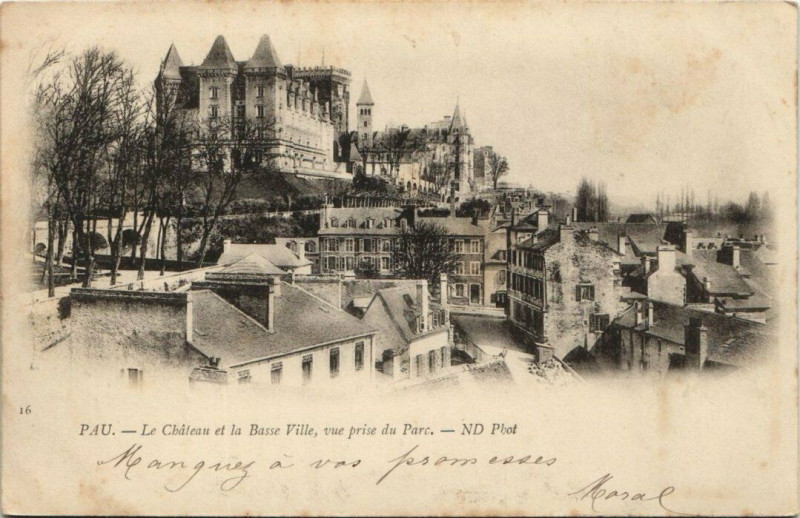 16
PAU. — Le Château et la Basse Ville, vue prise du Parc. — ND Phot
Manquez à vos promesses